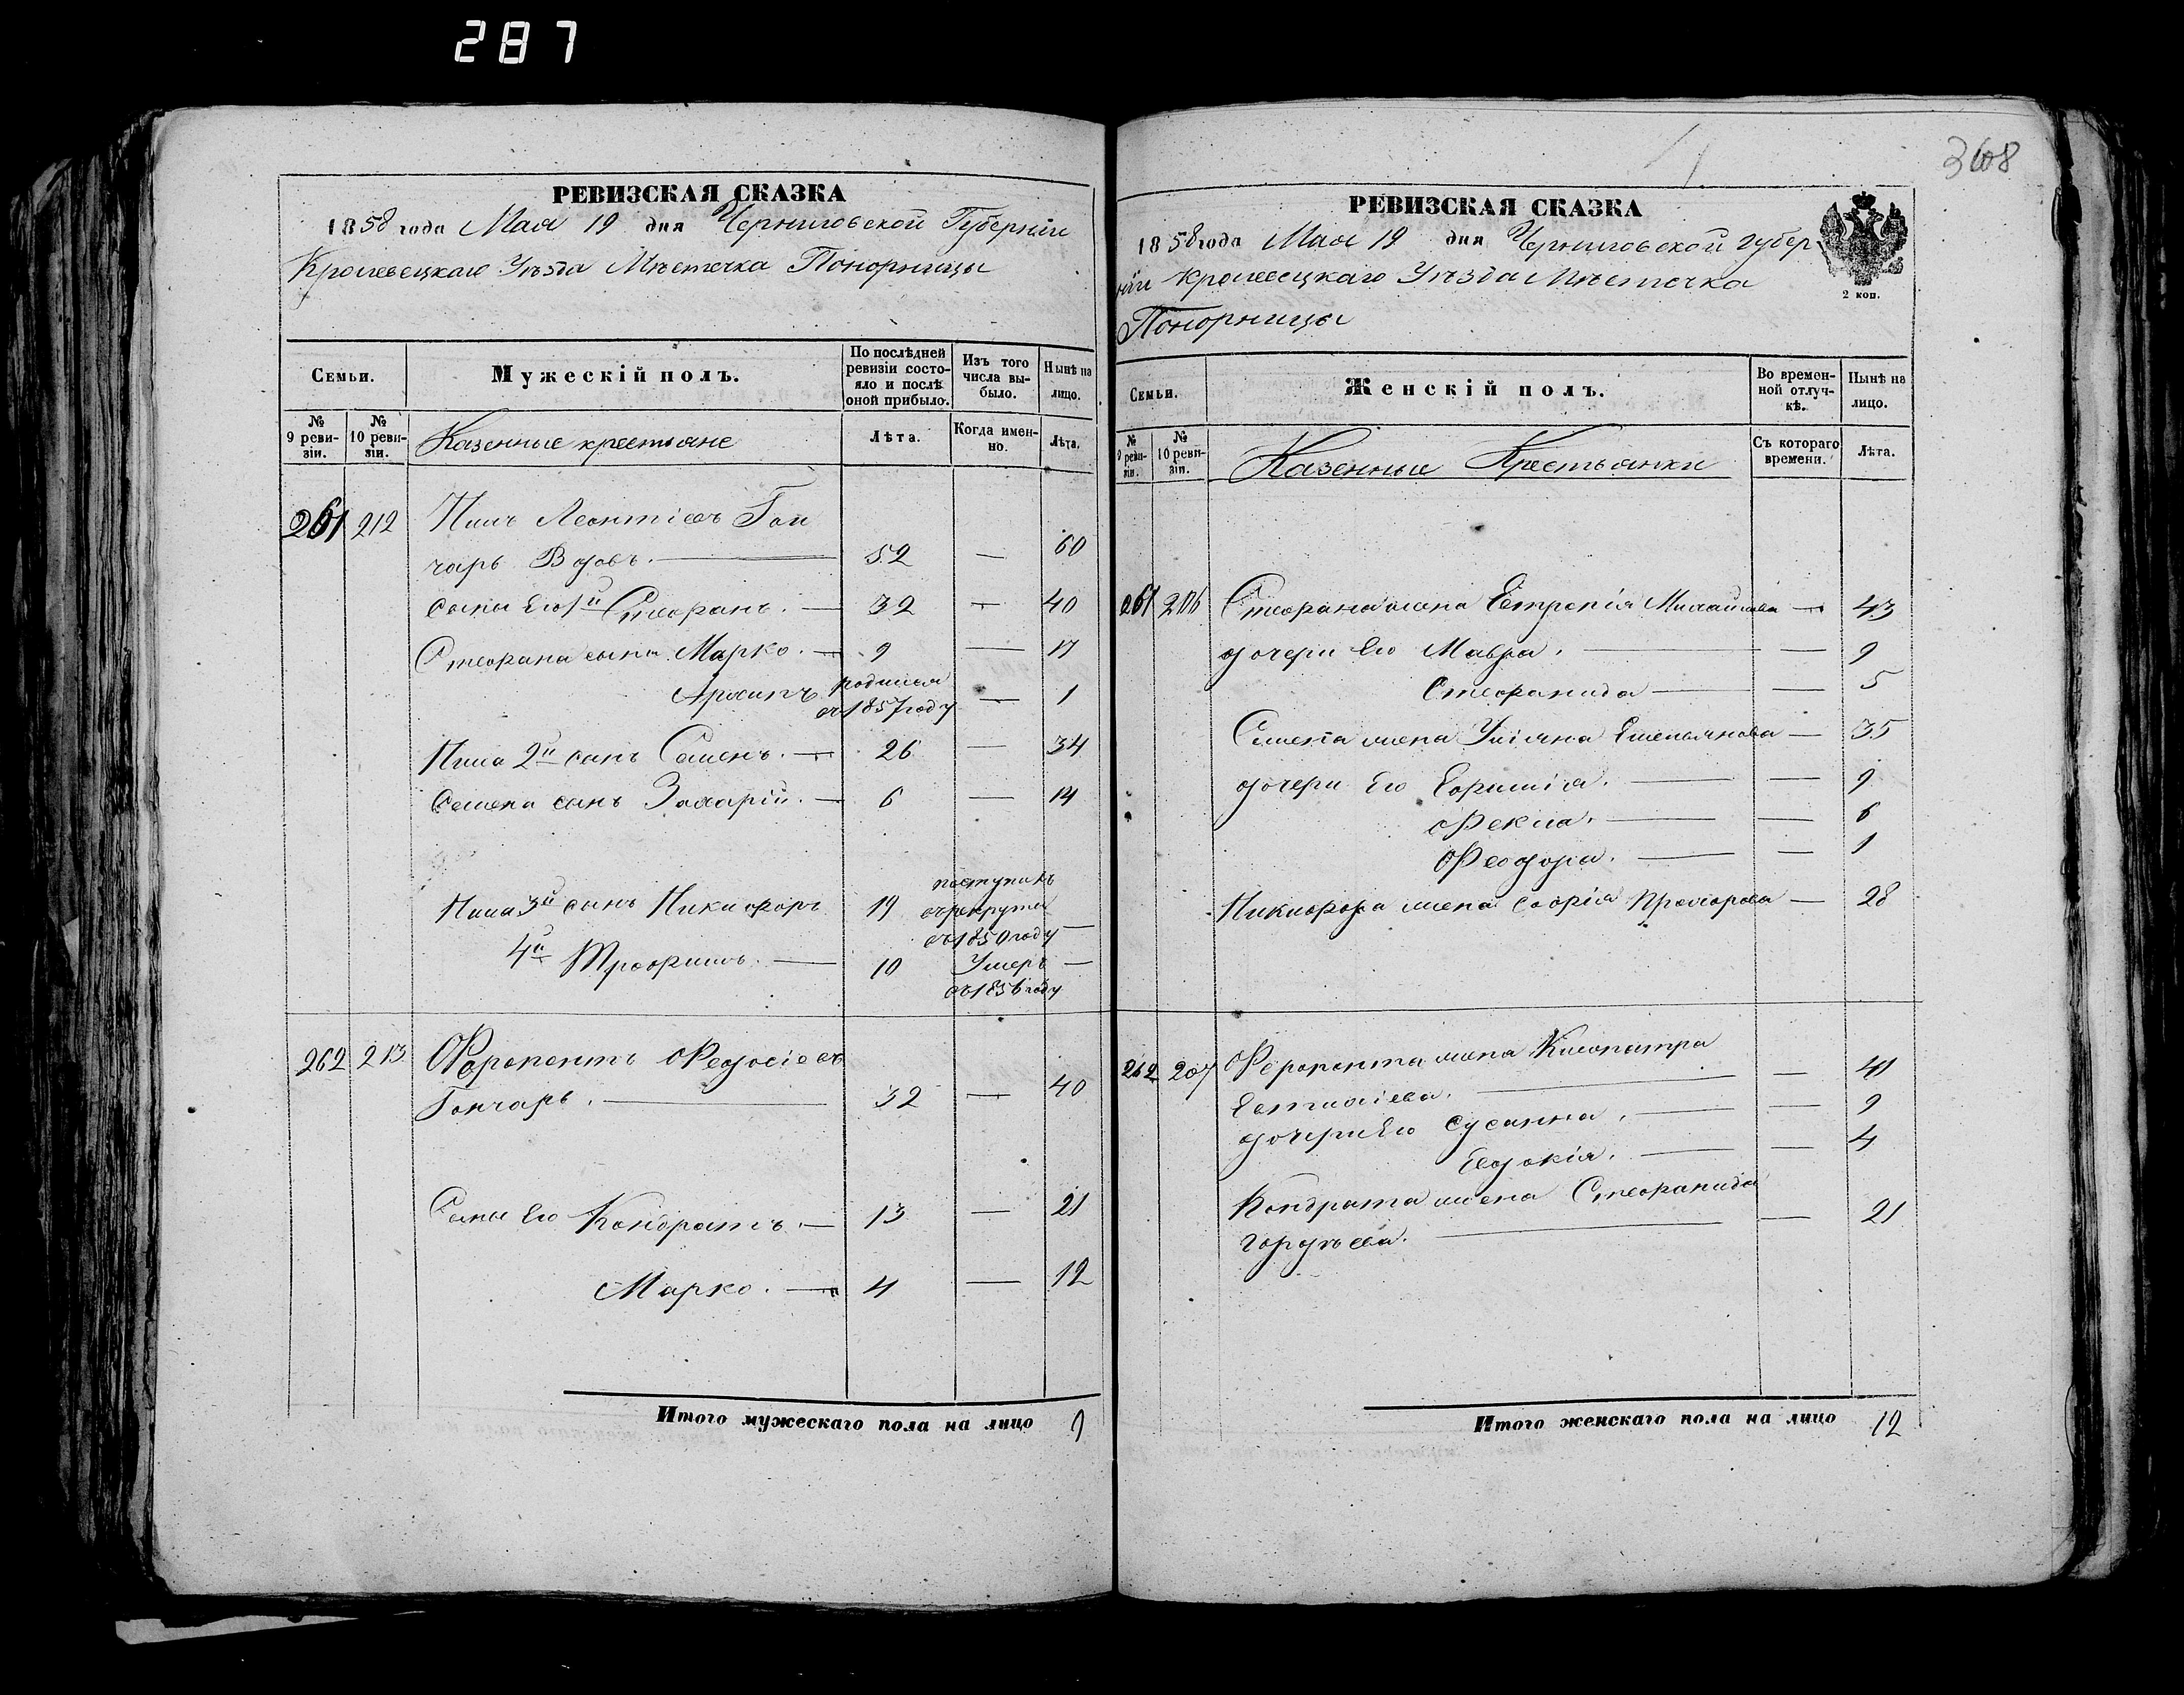 287
368
РЕВИЗСКАЯ СКАЗКА
1858 года Мая 19 дня Черниговской Губерніи
Кролевецкаго Уѣзда Мѣстечка Понорницы
Семьи.
Мужескій полъ.
По послѣдней ревизіи состояло и послѣ оной прибыло.
Изъ того числа выбыло.
Нынѣ на лицо.
№ 9 ревизіи.
№ 10 ревизіи.
Казенные крестьяне
Лѣта.
Когда именно.
Лѣта.
261 212 Нилъ Леонтіевъ Гон
чарь Вдовъ. 52 — 60
сыны Его 1й Стефанъ. — 32 — 40
Стефана сыны Марко. — 9 — 17
Архипъ родился
въ 1857 году — 1
Нила 2й сынъ Семенъ. — 26 — 34
Семена сынъ Захарій. — 6 — 14
Нила 3й сынъ Никифоръ 19 поступилъ
въ рекруты
въ 1850 году —
4й Трофимъ. — 10 Умеръ —
въ 1856 году
262 213 Ферапонтъ Федосіевъ
Гончарь. — 32 — 40
Сыны Его Кондратъ. — 13 — 21
Марко. — 4 — 12
Итого мужескаго пола на лицо 9
РЕВИЗСКАЯ СКАЗКА
1858 года Мая 19 дня Черниговской Губер
ніи Кролевецкаго Уѣзда Мѣстечка
Понорницы
2 коп.
Семьи.
Женскій полъ.
Во временной отлучкѣ.
Нынѣ на лицо.
№ 9 ревизіи.
№ 10 ревизіи.
Казенные Крестьянки
Съ котораго времени.
Лѣта.
261 206 Стефана жена Евтропія Михайлова — 43
дочери Его Мавра. — — 9
Стефанида — — 5
Семена жена Уліяна Емельянова — 35
дочери Его Ефимія. — — 9
Фекла. — — 6
Феодора. — — 1
Никифора жена Софія Прохорова — 28
262 207 Ферапонта жена Клеопатра
Евтихіева. — — 41
дочери Его Сусанна. — — 9
Евдокія. — — 4
Кондрата жена Стефанида
Гордѣева. — — 21
Итого женскаго пола на лицо 12